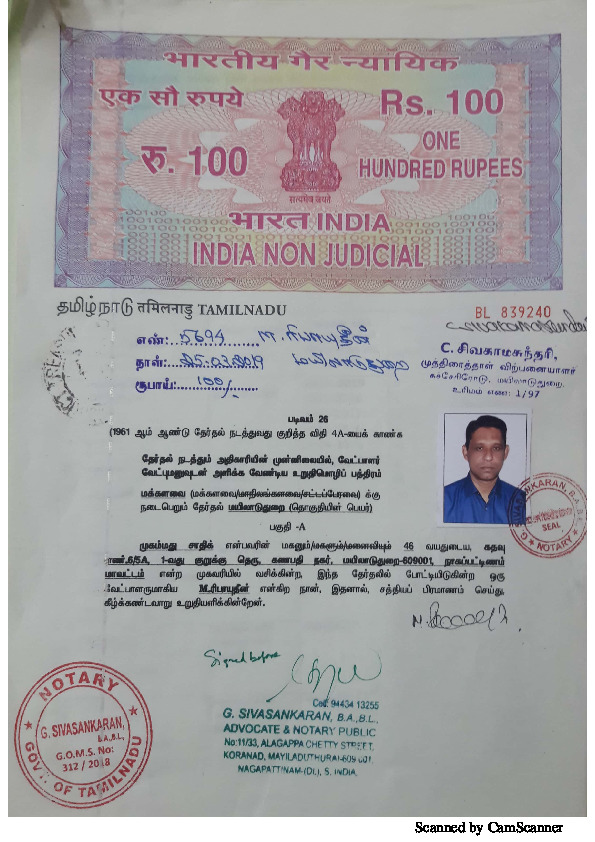 भारतीय गैर न्यायिक
एक सौ रुपये
Rs. 100
रु. 100
ONE
HUNDRED RUPEES
सत्यमेव जयते
भारत INDIA
INDIA NON JUDICIAL
தமிழ்நாடு तमिलनाडु TAMILNADU
BL 839240
எண்: 5694
நாள்: 25.03.2019 மயிலாடுதுறை
ரூபாய்: 100/-
C. சிவகாமசுந்தரி,
முத்திரைத்தாள் விற்பனையாளர்
கச்சேரிரோடு, மயிலாடுதுறை,
உரிமம் எண்: 1/97
படிவம் 26
(1961 ஆம் ஆண்டு தேர்தல் நடத்துவது குறித்த விதி 4A-யைக் காண்க
தேர்தல் நடத்தும் அதிகாரியின் முன்னிலையில், வேட்பாளர்
வேட்புமனுவுடன் அளிக்க வேண்டிய உறுதிமொழிப் பத்திரம்
மக்களவை (மக்களவை/மாநிலங்களவை/சட்டப்பேரவை) க்கு
நடைபெறும் தேர்தல் மயிலாடுதுறை (தொகுதியின் பெயர்)
பகுதி -A
முகம்மது சாதிக் என்பவரின் மகனும்/மகளும்/மனைவியும் 46 வயதுடைய, கதவு
எண்.6/5A, 1-வது குறுக்கு தெரு, கணபதி நகர், மயிலாடுதுறை-609001, நாகப்பட்டிணம்
மாவட்டம் என்ற முகவரியில் வசிக்கின்ற, இந்த தேர்தலில் போட்டியிடுகின்ற ஒரு
வேட்பாளருமாகிய M.ரிபாயுதீன் என்கிற நான், இதனால், சத்தியப் பிரமாணம் செய்து,
கீழ்க்கண்டவாறு உறுதியளிக்கின்றேன்.
SEAL
NOTARY
Signed before
Cell: 94434 13255
G. SIVASANKARAN, B.A.,B.L.,
ADVOCATE & NOTARY PUBLIC
No:11/33, ALAGAPPA CHETTY STREET,
KORANAD, MAYILADUTHURAI-609 001.
NAGAPATTINAM-(Dt.), S. INDIA.
NOTARY
G. SIVASANKARAN,
B.A.,B.L.,
G.O.M.S. No:
312 / 2018
GOVT. OF TAMILNADU
Scanned by CamScanner